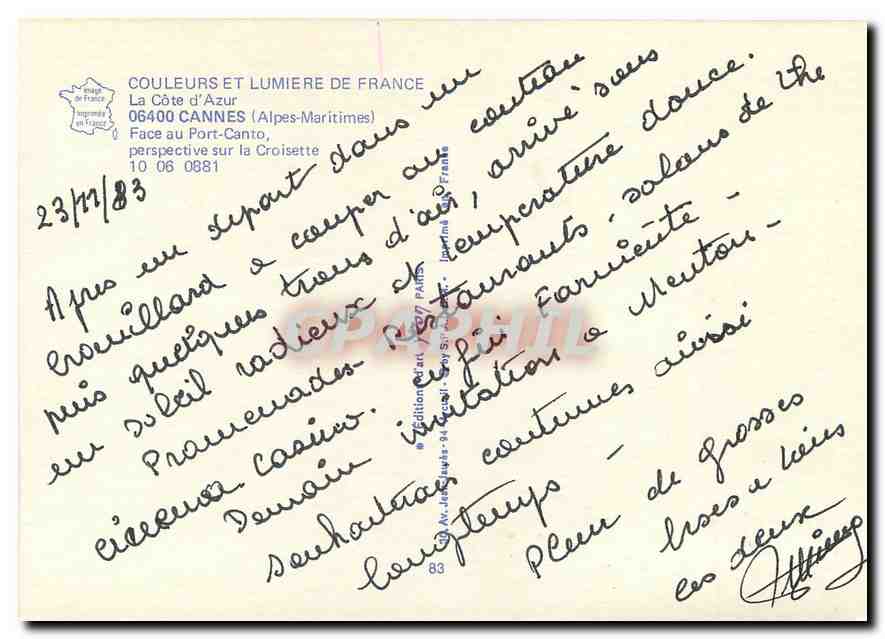 Image
de France
Imprimée
en France
COULEURS ET LUMIERE DE FRANCE
La Côte d'Azur
06400 CANNES (Alpes-Maritimes)
Face au Port-Canto,
perspective sur la Croisette
10 06 0881
23/11/83
Apres un depart dans un
brouillard a couper au couteau
puis quelques trous d'air, arrivé sous
un soleil radieux et temperature douce.
Promenades - Restaurants - salons de the
cinema. Casino. enfin Farniente -
Demain invitation a Menton -
souhaiterais continuer aussi
longtemps -
Plein de grosses
bises a
les deux
Editions d'art
PARIS
Imprimé en France
Av. Jean-Jaurès - 94
83
CPAPHIL